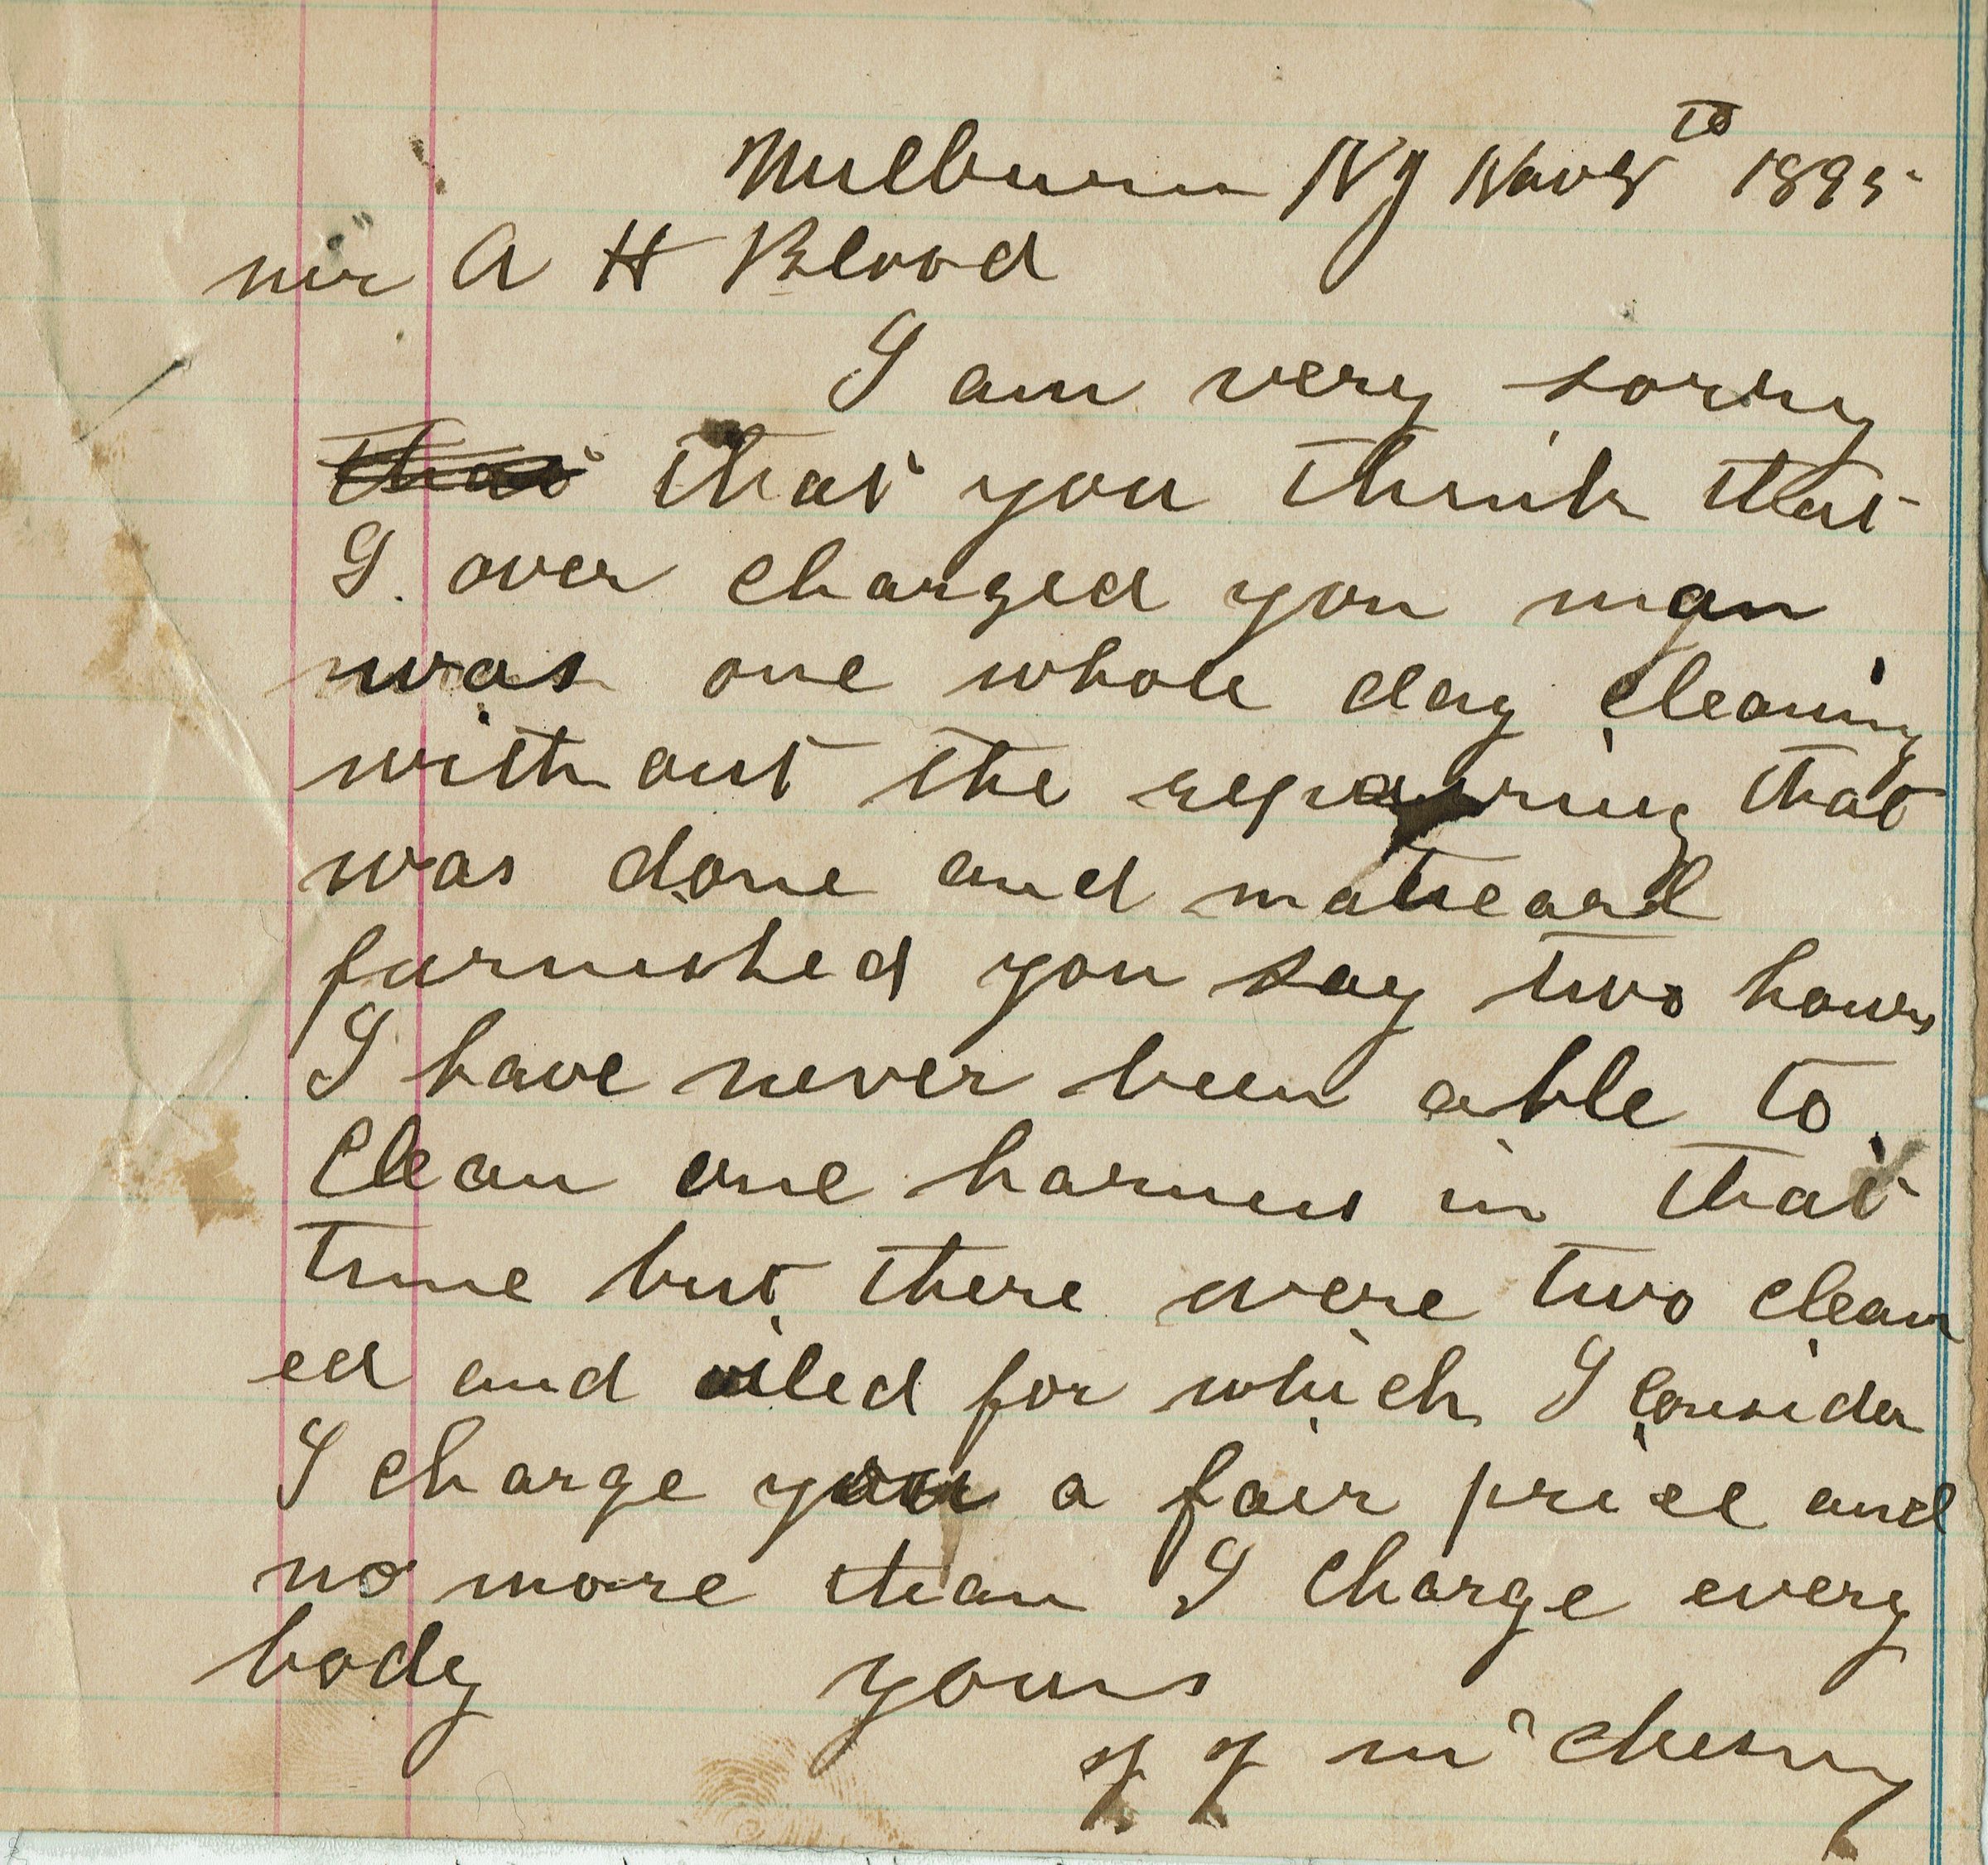 Milburn NJ Nov 8th 1895
mr A H Blood
I am very sorry
that that you think that
I. over charged you man
was one whole day cleaning
with out the repairing that
was done and mateard
furnished you say two hours
I have never been able to
Clean one harness in that
time but there were two clean
ed and oiled for which I Consider
I charge you a fair price and
no more than I charge every
body yours
J J Mc